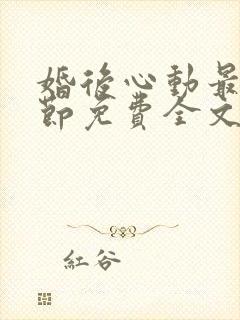 婚後心動最
節免費全文
紅谷